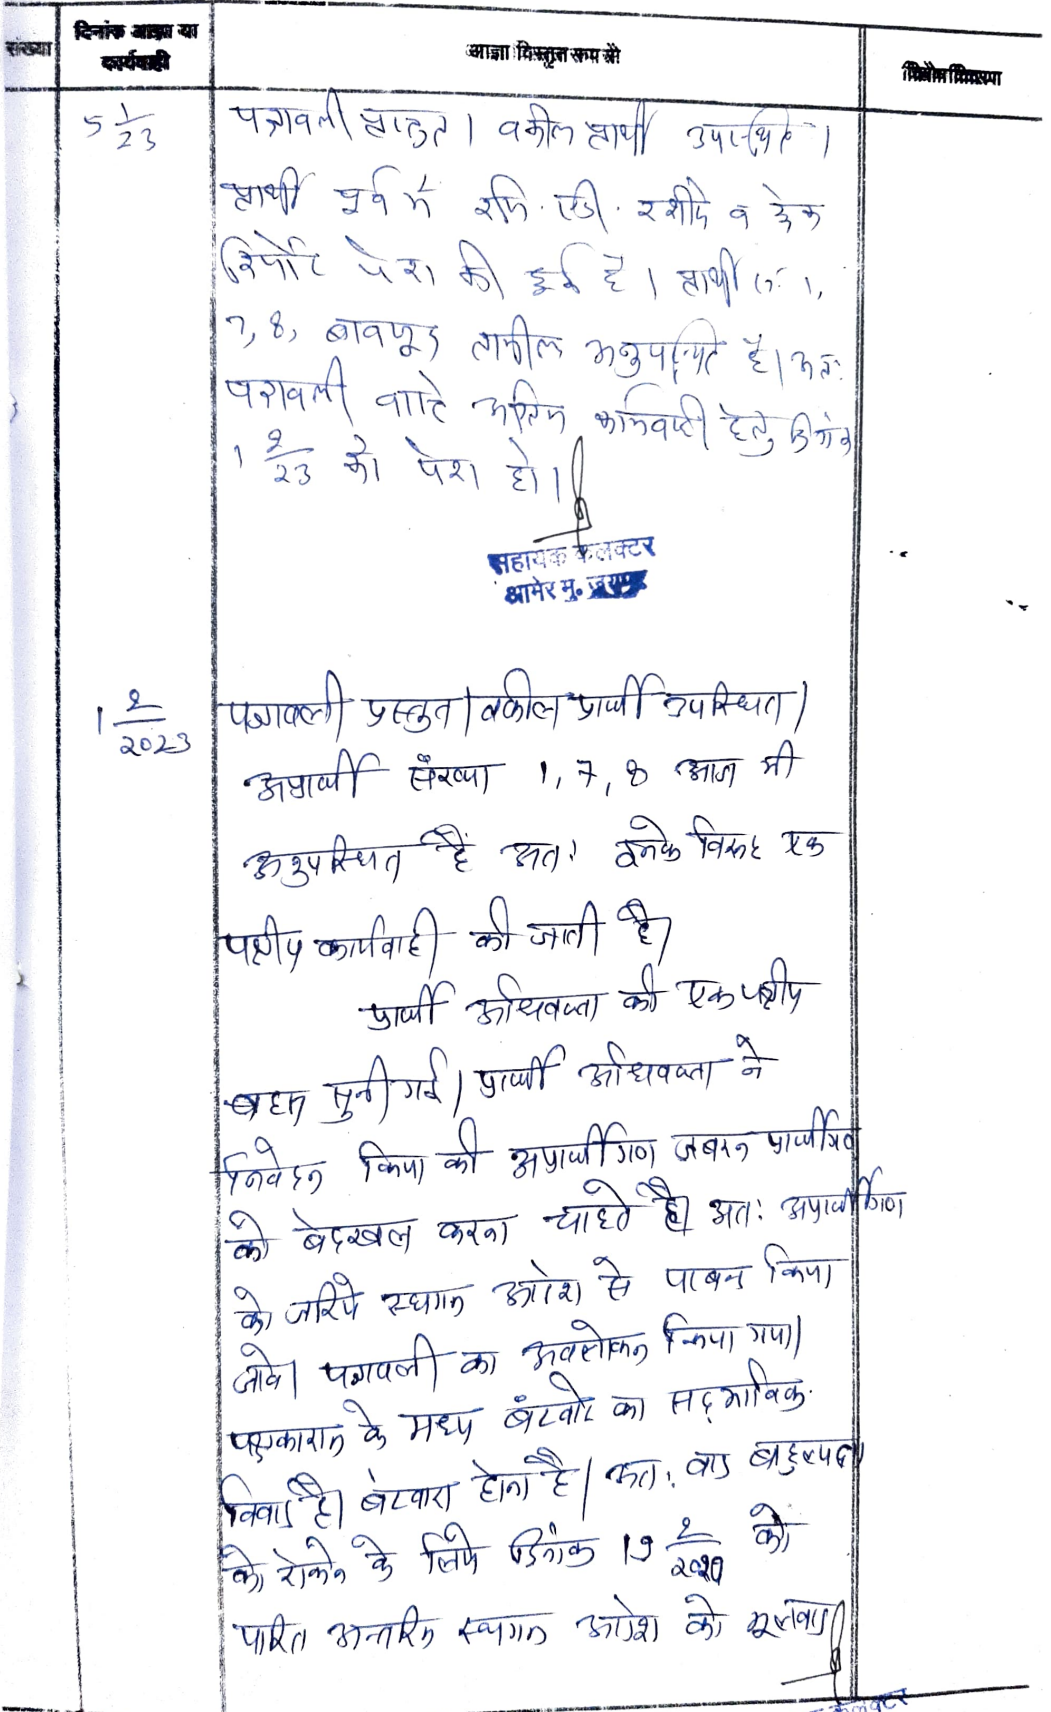 संख्या
दिनांक आज्ञा या
कार्यवाही
आज्ञा विस्तृत रूप से
5 1/23
पत्रावली प्रस्तुत। वकील प्रार्थी उपस्थित।
प्रार्थी पूर्व में रजि. एडी. रशीदे व ट्रेक
रिपोर्ट पेश की हुई है। प्रार्थी सं. 1,
7, 8, बावजूद तामील अनुपस्थित है। अतः
पत्रावली वास्ते अग्रिम कार्यवाही हेतु दिनांक
1 2/23 को पेश हो।
सहायक कलक्टर
आमेर मु. जयपुर
1 2/2023
पत्रावली प्रस्तुत। वकील प्रार्थी उपस्थित।
अप्रार्थी संख्या 1, 7, 8 आज भी
अनुपस्थित हैं अतः इनके विरूद्ध एक
पक्षीय कार्यवाही की जाती है।
प्रार्थी अधिवक्ता की एक पक्षीय
बहस सुनी गई। प्रार्थी अधिवक्ता ने
निवेदन किया की अप्रार्थीगण जबरन प्रार्थीगण
को बेदखल करना चाहते है। अतः अप्रार्थीगण
को जरिये स्थगन आदेश से पाबन्द किया
जावे। पत्रावली का अवलोकन किया गया।
पक्षकारान के मध्य बंटवारे का सद्भाविक
विवाद है। बंटवारा होना है। अतः वाद बाहुल्यता
को रोकने के लिये दिनांक 19 2/2020 को
पारित अन्तरिम स्थगन आदेश को मूलवाद
कलक्टर